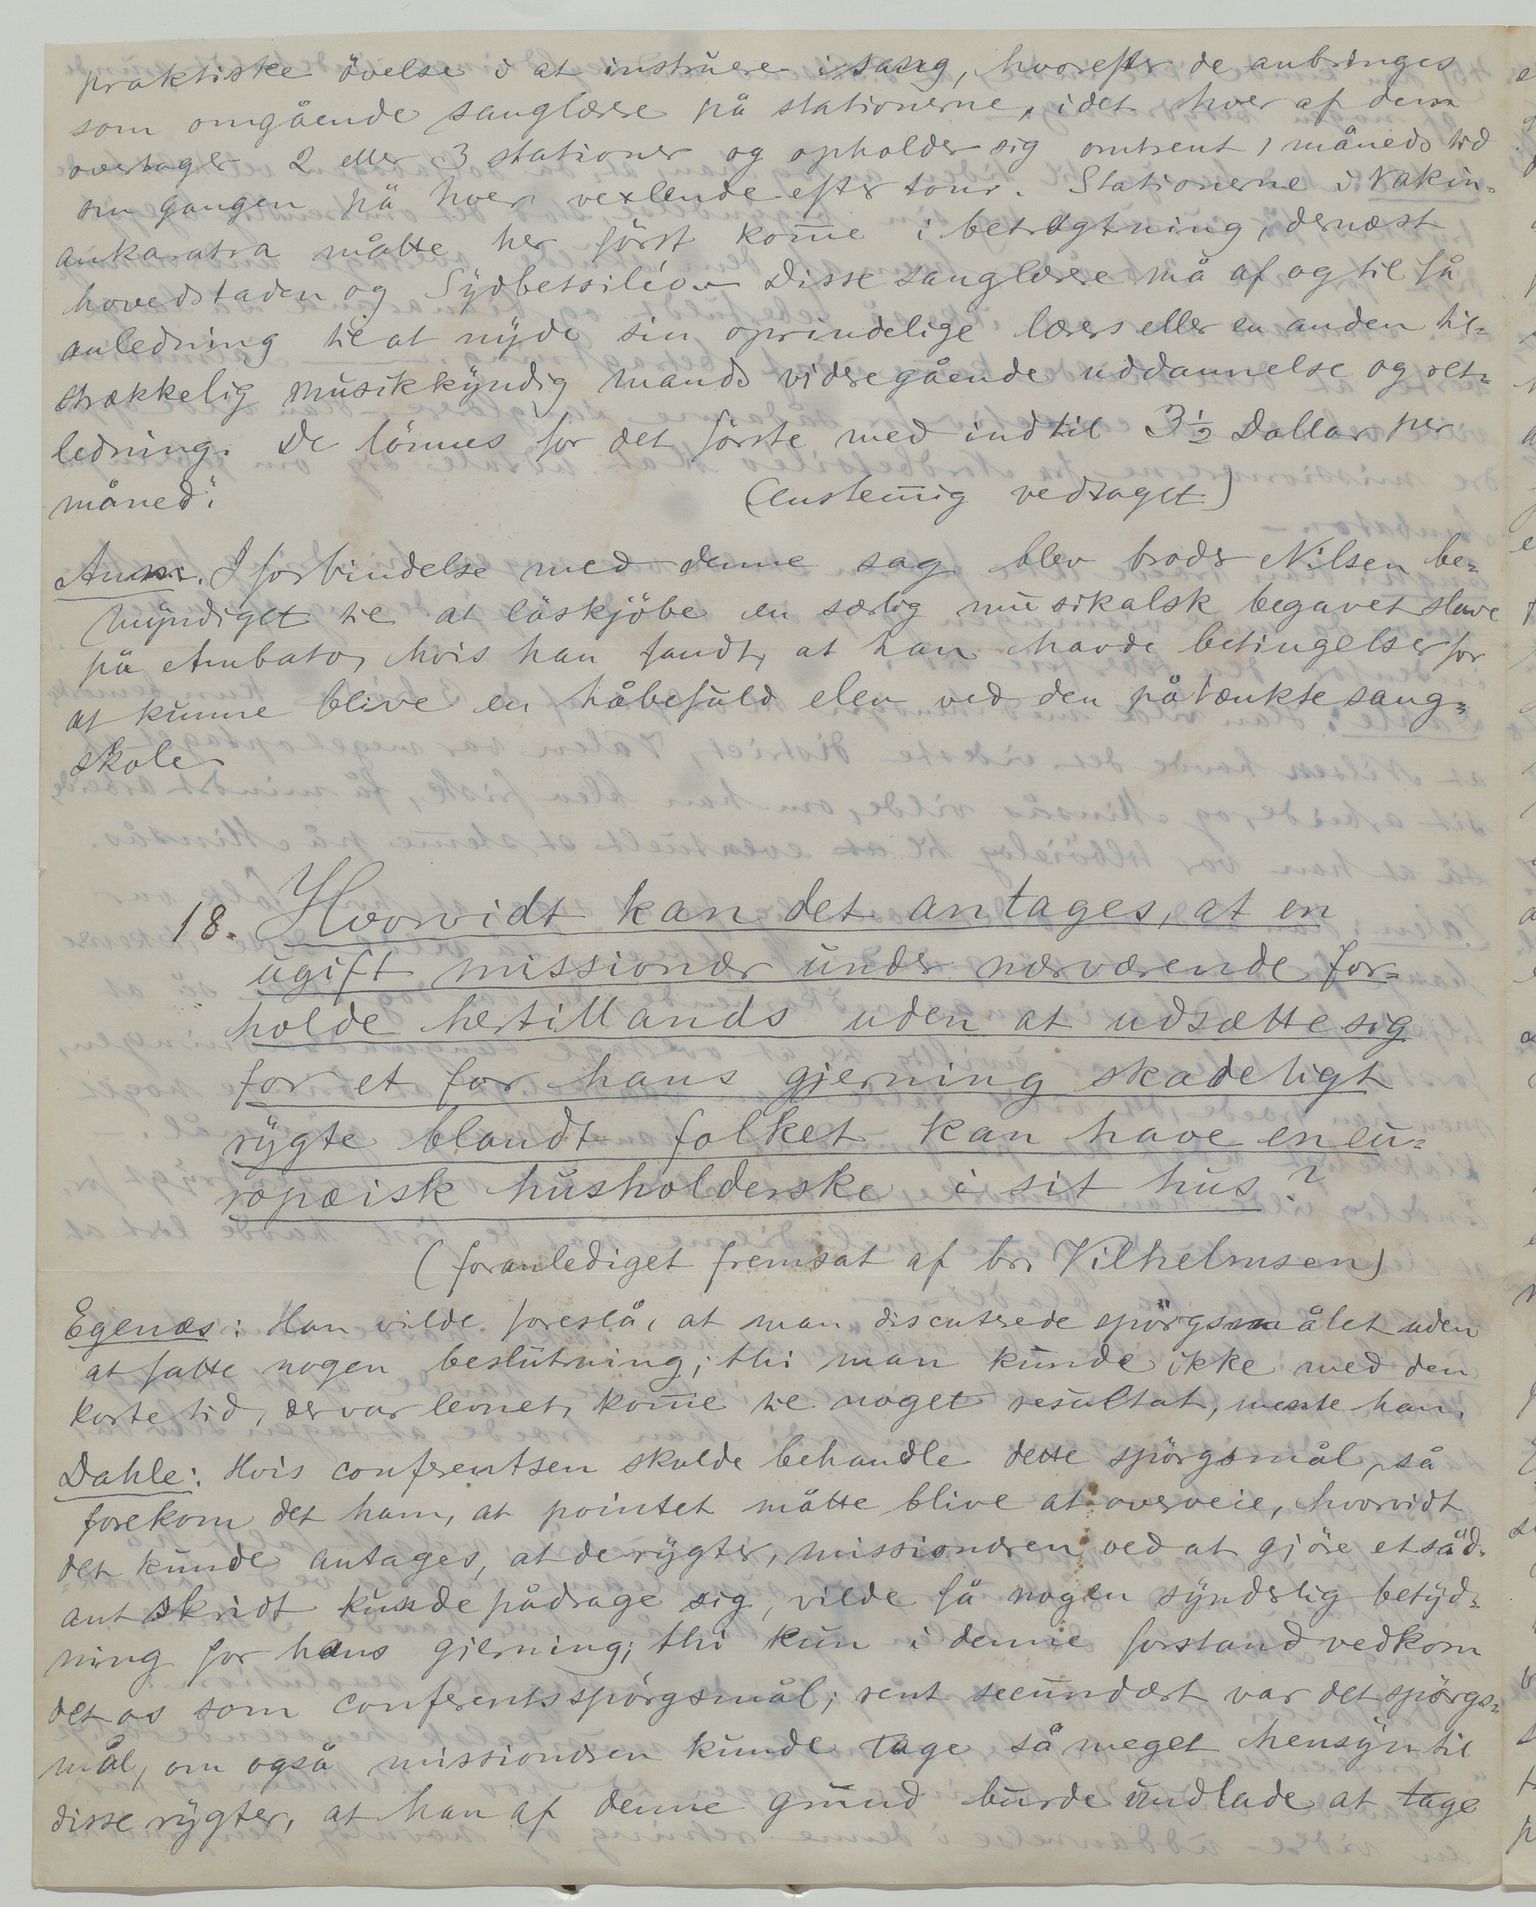 praktiske övelse i at instruere i sang, hvorefter de anbringes
som omgående sanglærere på stationerne, idet hver af dem
overtager 2 eller 3 stationer og opholder sig omtrent 1 måneds tid
om gangen på hver, vexlende efter tour. Stationerne i Vakin-
ankaratra måtte her först kom̄e i betragtning, dernæst
hovedstaden og Sydbetsiléo. Disse sanglærere må af og til få
anledning til at nyde sin oprindelige lærers eller en anden til-
strækkelig musikkyndig mands videregående uddannelse og vei-
ledning. De lönnes for det förste med indtil 3½ Dollar per
måned." (enstem̄ig vedtaget)
Anm. I forbindelse med denne sag blev broder Nilsen be-
myndiget til at löskjöbe en særlig musikalsk begavet slave
på Ambato, hvis han fandt, at han havde betingelser for
at kunne blive en håbefuld elev ved den påtænkte sang-
skole.
18. Hvorvidt kan det antages, at en
ugift missionær under nærværende for-
holde hertillands uden at udsætte sig
for et for hans gjerning skadeligt
rygte blandt folket kan have en eu-
ropæisk husholderske i sit hus?
(foranlediget fremsat af br. Vilhelmsen)
Egenæs: Han vilde foreslå, at man discuterede spörgsmålet uden
at fatte nogen beslutning; thi man kunde ikke med den
korte tid, der var levnet, kom̄e til noget resultat, mente han.
Dahle: Hvis conferentsen skulde behandle dette spörgsmål, så
forekom det ham, at pointet måtte blive at overveie, hvorvidt
det kunde antages, at de rygter, missionæren ved at gjöre et såd-
ant skridt kunde pådrage sig, vilde få nogen synderlig betyd-
ning for hans gjerning; thi kun i denne forstand vedkom
det os som conferentsspörgsmål; rent secundært var det spörgs-
mål, om også missionæren kunde tage så meget hensyn til
disse rygter, at han af denne grund burde undlade at tage